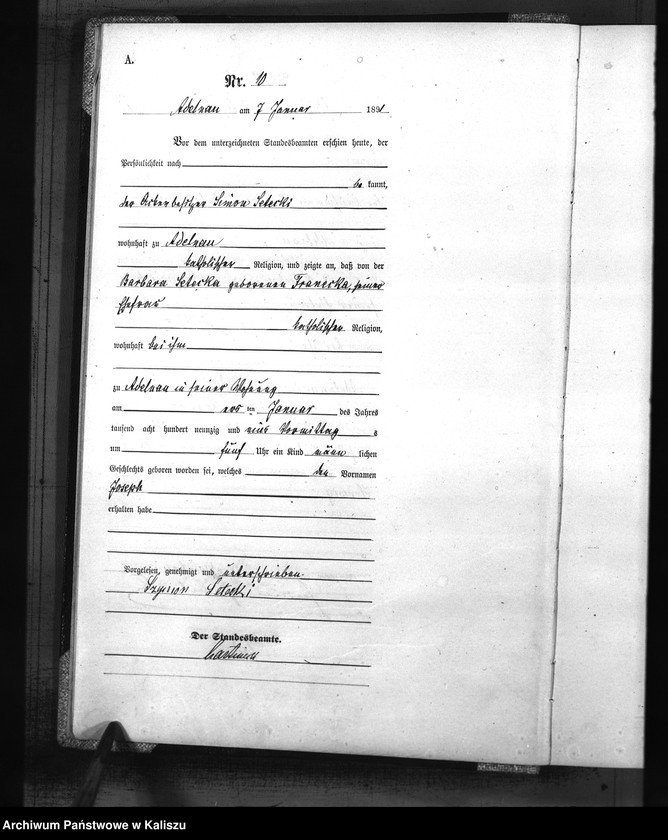 A.
Nr. 10
Adelnau am 7 Januar 1891
Vor dem unterzeichneten Standesbeamten erschien heute, der
Persönlichkeit nach
be kannt,
der Ackerbesitzer Simon Setecki
wohnhaft zu Adelnau
katholischer Religion, und zeigte an, daß von der
Barbara Setecka geborenen Franecka, seiner
Ehefrau
katholischer Religion,
wohnhaft bei ihm
zu Adelnau in seiner Wohnung
am ers ten Januar des Jahres
tausend acht hundert neunzig und eins Vormittag s
um fünf Uhr ein Kind männ lichen
Geschlechts geboren worden sei, welches den Vornamen
Joseph
erhalten habe
Vorgelesen, genehmigt und unterschrieben.
Szymon Setecki
Der Standesbeamte.
Archiwum Państwowe w Kaliszu